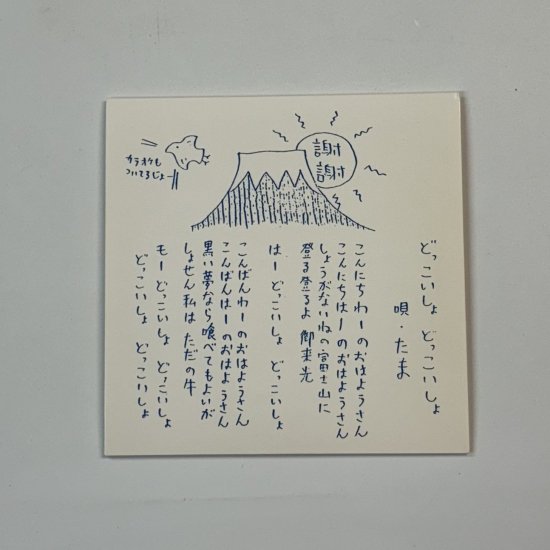 謝
謝
カラオケも
ついてるじょー!!
どっこいしょ どっこいしょ
唄・たま
こんにちわーのおはようさん
こんにちはーのおはようさん
しょうがないねの富士山に
登る登るよ 御来光
はー どっこいしょ どっこいしょ
こんばんわーのおはようさん
こんばんはーのおはようさん
黒い夢なら喰べてもよいが
しょせん私は ただの牛
もー どっこいしょ どっこいしょ
どっこいしょ どっこいしょ